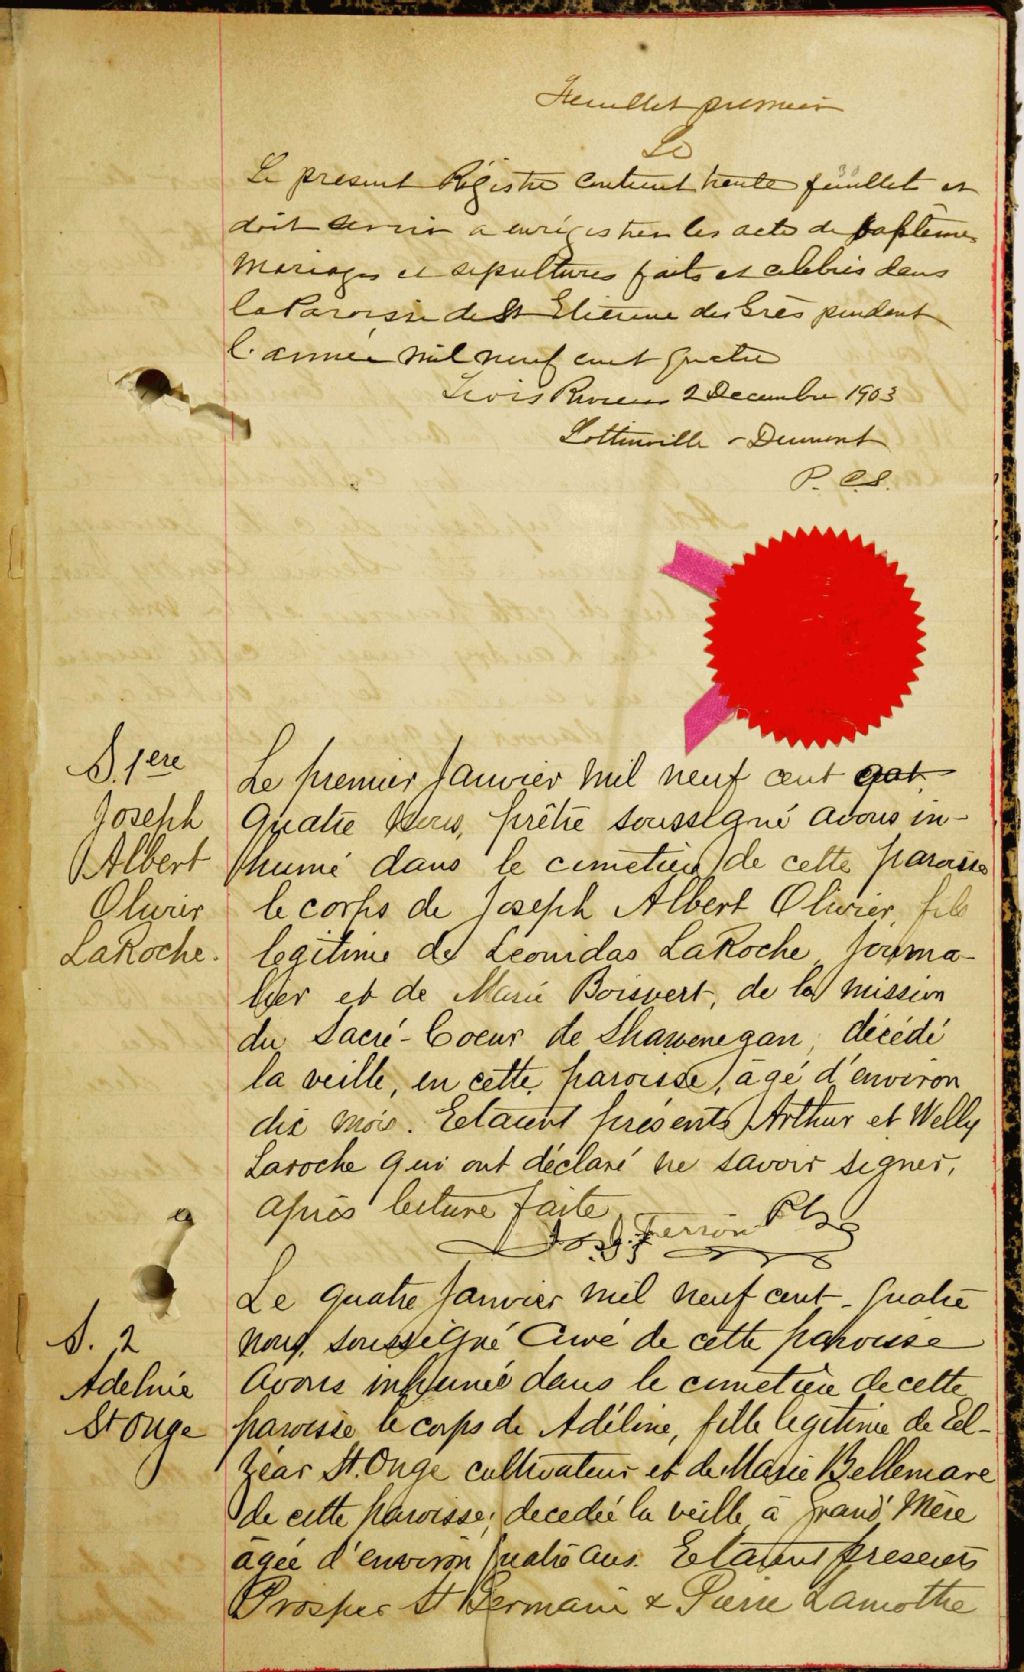 Feuillet premier
Le
Le present Régistre contient trente feuillets et
doit servir a enrégistrer les actes de baptêmes
Mariages et sepultures faits et celebrés dans
la Paroisse de St Etienne des Grès pendant
l'année mil neuf cent quatre
Trois Rivieres 2 Decembre 1903
Lottinville & Dumont
P. C. S.
S. 1ere
Joseph
Albert
Olivier
LaRoche.
Le premier Janvier mil neuf cent quat
quatre nous, prêtre soussigné avons in-
humé dans le cimetière de cette paroisse
le corps de Joseph Albert Olivier, fils
legitime de Leonidas LaRoche, journa-
lier et de Marie Boisvert, de la mission
du Sacré-Coeur de Shawenegan, décédé
la veille, en cette paroisse, âgé d'environ
dix mois. Etaient présents Arthur et Welly
Laroche qui ont déclaré ne savoir signer,
après lecture faite
Jos. Ferron Ptre
S. 2
Adeline
St Onge
Le quatre Janvier mil neuf cent-quatre
nous, soussigné Curé de cette paroisse
avons inhumé dans le cimetière de cette
paroisse le corps de Adéline, fille legitime de Eel-
zéar St. Onge cultivateur et de Marie Bellemare
de cette paroisse, decedée la veille à Grand'Mère
âgée d'environ quatre ans. Etaient presents
Prosper St Germain & Pierre Lamothe